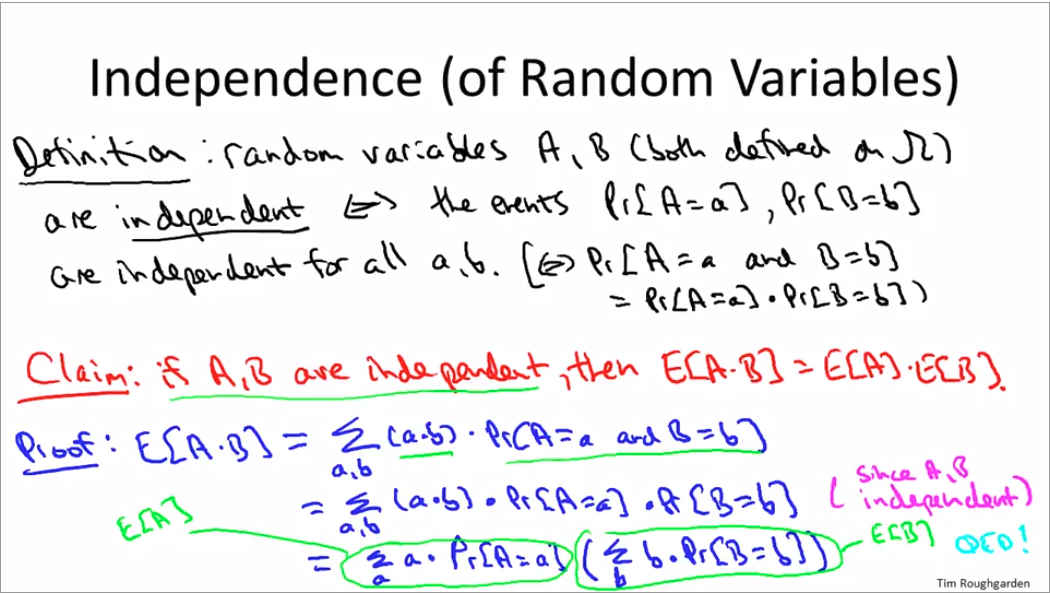 Independence (of Random Variables)
Definition: random variables A, B (both defined on Ω)
are independent <=> the events Pr[A=a], Pr[B=b]
are independent for all a,b. [<=> Pr[A=a and B=b]
= Pr[A=a]·Pr[B=b])
Claim: if A,B are independent, then E[A·B] = E[A]·E[B].
Proof: E[A·B] = ∑ (a·b) · Pr[A=a and B=b]
a,b
= ∑ (a·b) · Pr[A=a] · Pr[B=b] (since A,B independent)
a,b
E[A]
= ∑ a · Pr[A=a] (∑ b·Pr[B=b]) E[B] QED!
a b
Tim Roughgarden